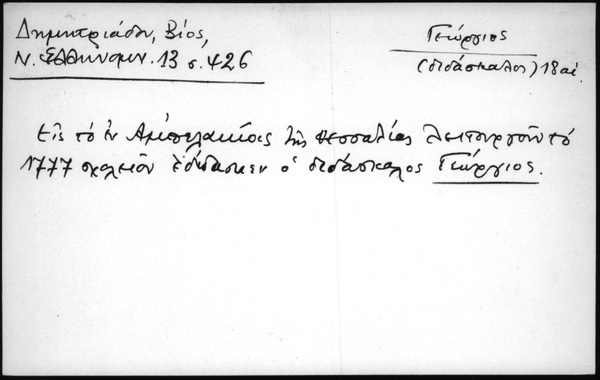 Δημητριάδου, Βίος,
Ν. Ἑλληνομν. 13 σ. 426
Γεώργιος
(διδάσκαλος) 18 αἰ.
Εἰς τὸ ἐν Ἀμπελακίοις τῆς Θεσσαλίας λειτουργοῦν τὸ
1777 σχολεῖον ἐδίδασκεν ὁ διδάσκαλος Γεώργιος.